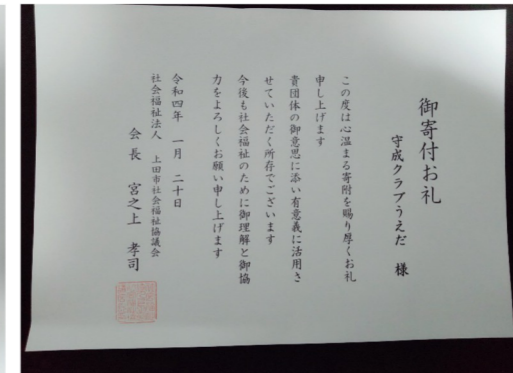 御寄付お礼
守成クラブうえだ 様
この度は心温まる寄附を賜り厚くお礼
申し上げます
貴団体の御意思に添い有意義に活用さ
せていただく所存でございます
今後も社会福祉のために御理解と御協
力をよろしくお願い申し上げます
令和四年 一月 二十日
社会福祉法人 上田市社会福祉協議会
会長 宮之上 孝司